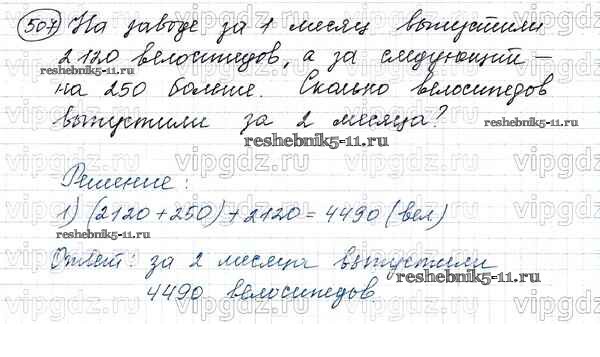 507 На заводе за 1 месяц выпустили
2120 велосипедов, а за следующий –
на 250 больше. Сколько велосипедов
выпустили за 2 месяца?
Решение:
1) (2120 + 250) + 2120 = 4490 (вел)
Ответ: за 2 месяца выпустили
4490 велосипедов
reshebnik5-11.ru
reshebnik5-11.ru
reshebnik5-11.ru
reshebnik5-11.ru
reshebnik5-11.ru
vipgdz.ru